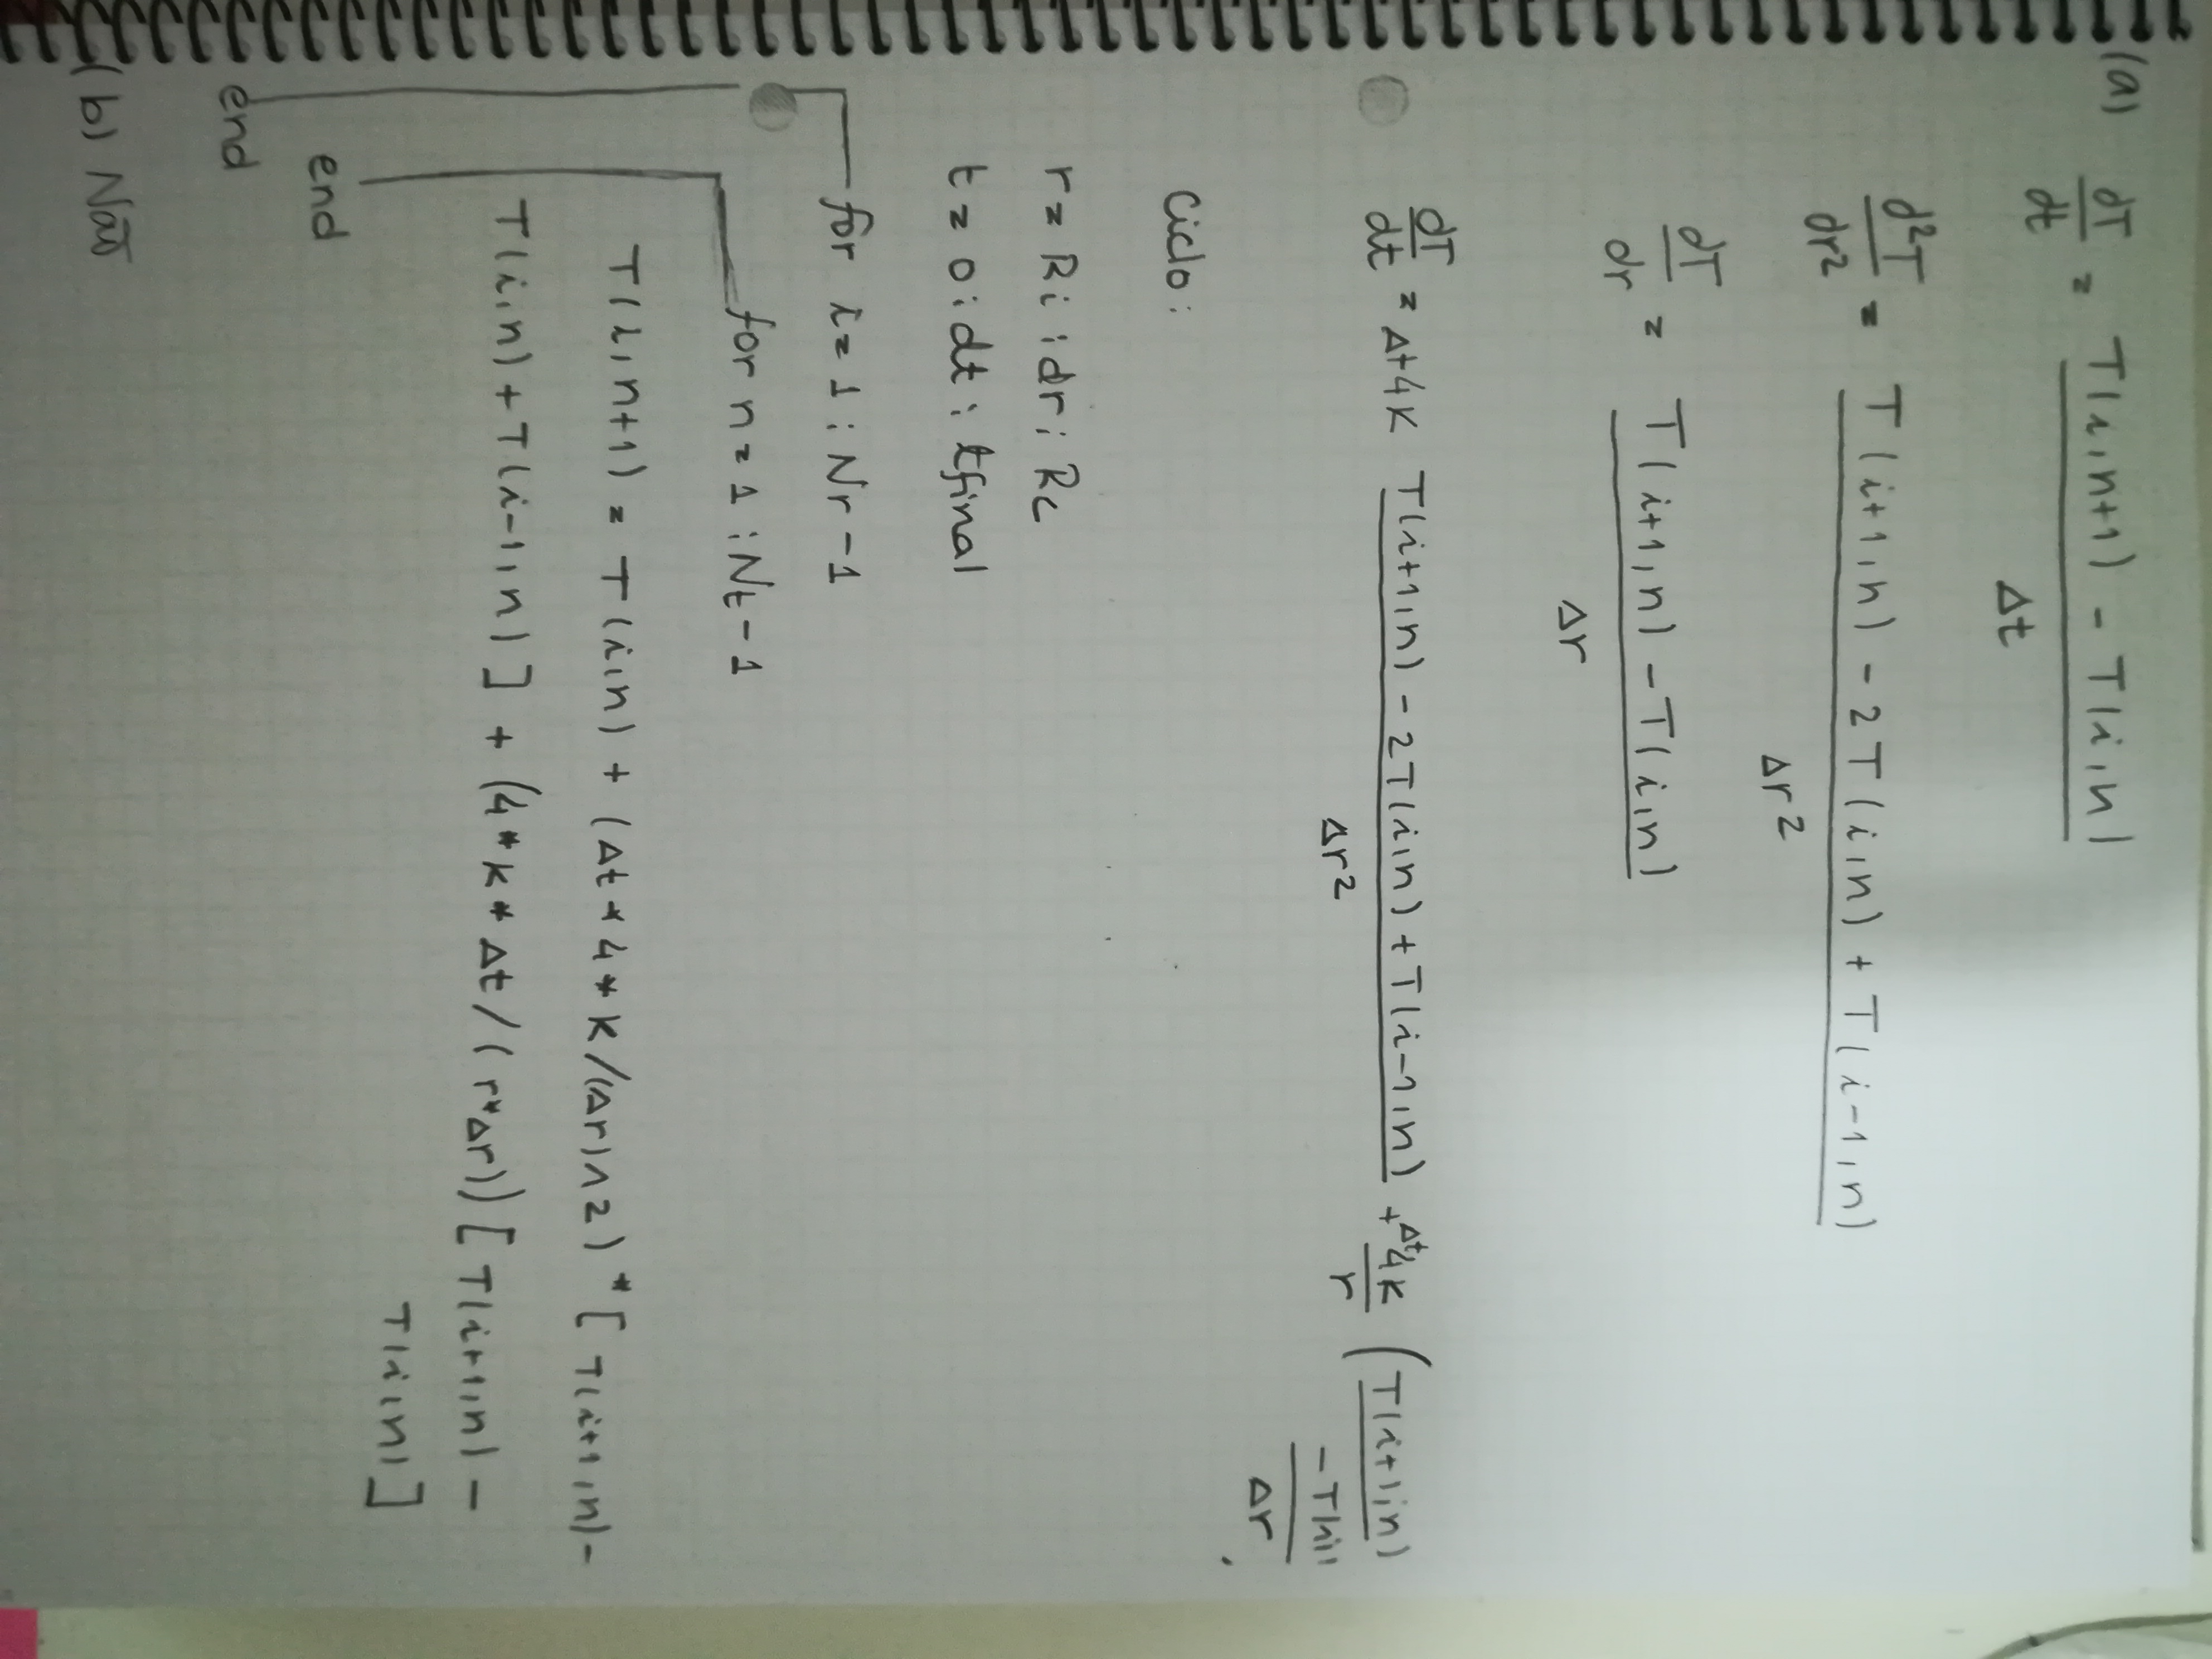 (a) dT/dt = T(i,n+1) - T(i,n) / Δt
d²T/dr² = T(i+1,n) - 2T(i,n) + T(i-1,n) / Δr²
dT/dr = T(i+1,n) - T(i,n) / Δr
dT/dt = Δt4K T(i+1,n) - 2T(i,n) + T(i-1,n) / Δr² + Δt4K/r ( T(i+1,n)
- T(i,
Δr
Ciclo:
r = Ri : dr : Rc
t = 0 : dt : tfinal
for i = 1 : Nr - 1
for n = 1 : Nt - 1
T(i,n+1) = T(i,n) + (Δt * 4 * K/(Δr)^2) * [ T(i+1,n) -
T(i,n) + T(i-1,n) ] + (4 * K * Δt / ( r*Δr)) [ T(i+1,n) -
T(i,n) ]
end
end
(b) Não